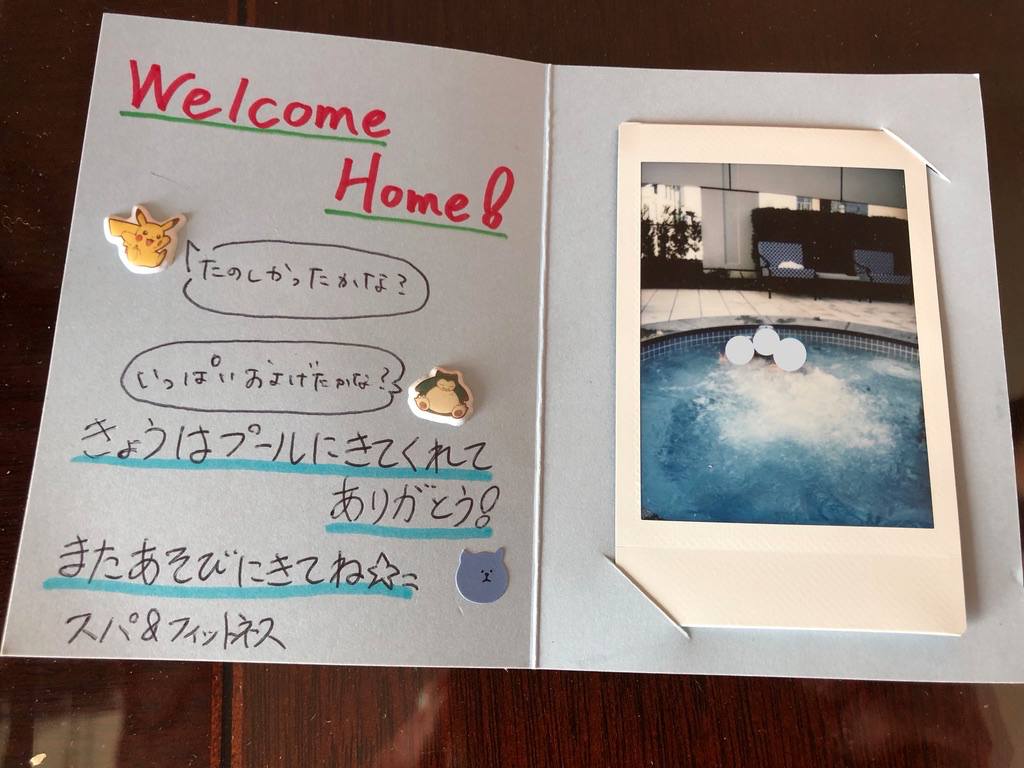 Welcome
Home!
たのしかったかな?
いっぱいおよげたかな?
きょうはプールにきてくれて
ありがとう!
またあそびにきてね☆
スパ&フィットネス